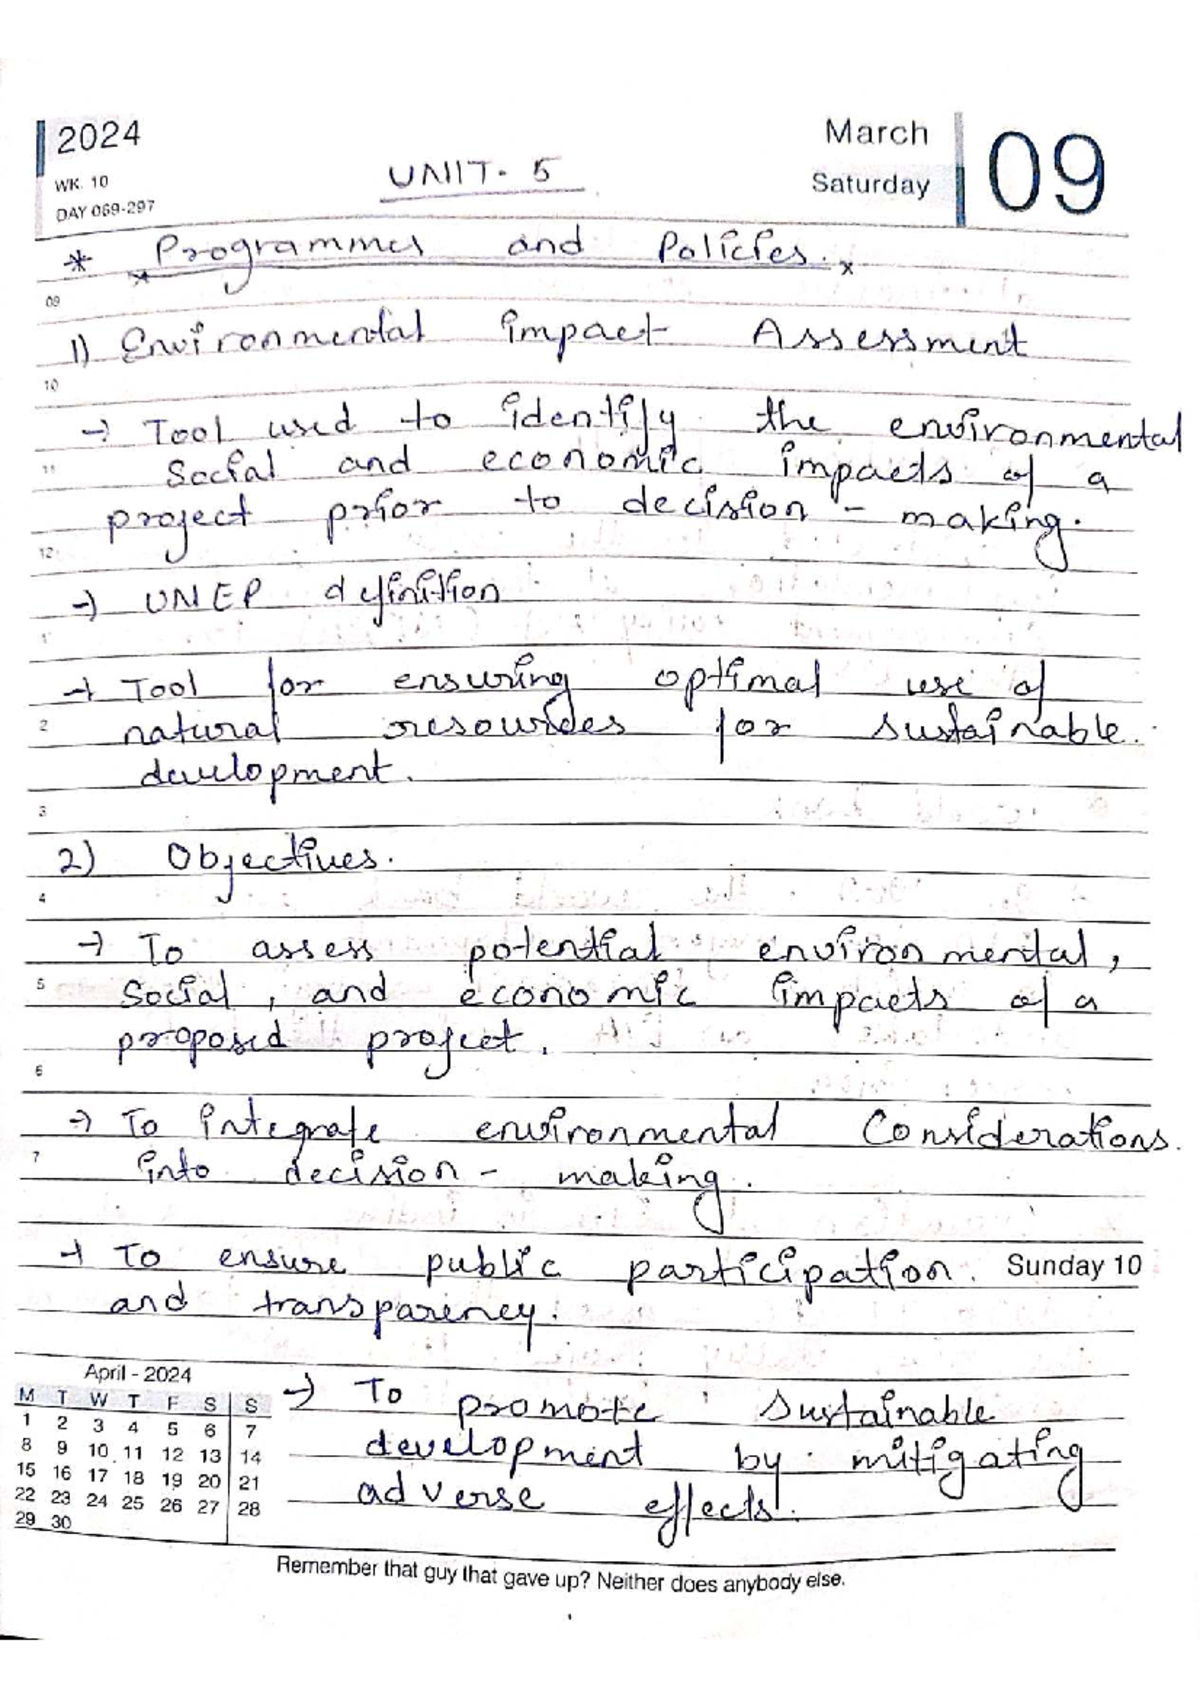 2024
WK. 10
DAY 069-297
UNIT- 5
March
Saturday
09
* Programmes and Policies.
09
1) Environmental impact Assessment
10
→ Tool used to identify the environmental
11
social and economic impacts of a
project prior to decision - making.
12
→ UNEP definition
1
→ Tool for ensuring optimal use of
2
natural resources for sustainable
development.
3
2) Objectives.
4
→ To assess potential environmental,
5
social, and economic impacts of a
proposed project.
6
→ To integrate environmental Considerations
7
into decision - making.
→ To ensure public participation.
Sunday 10
and transparency.
April - 2024
M T W T F S S
1 2 3 4 5 6 7
8 9 10 11 12 13 14
15 16 17 18 19 20 21
22 23 24 25 26 27 28
29 30
→ To promote sustainable
development by mitigating
adverse effects.
Remember that guy that gave up? Neither does anybody else.